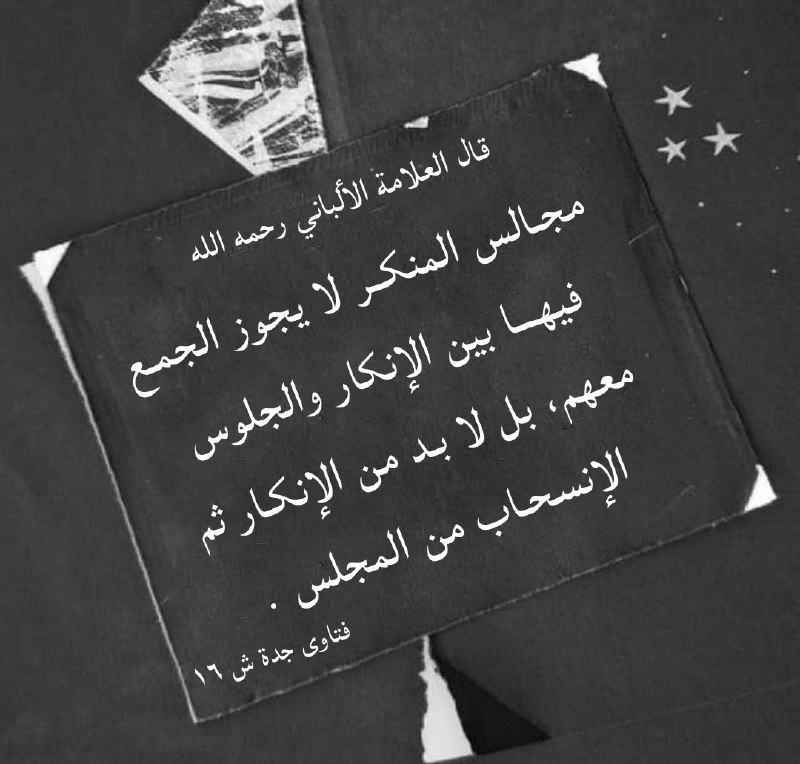 قال العلامة الألباني رحمه الله
مجالس المنكر لا يجوز الجمع
فيها بين الإنكار والجلوس
معهم، بل لا بد من الإنكار ثم
الإنسحاب من المجلس .
فتاوى جدة ش ١٦